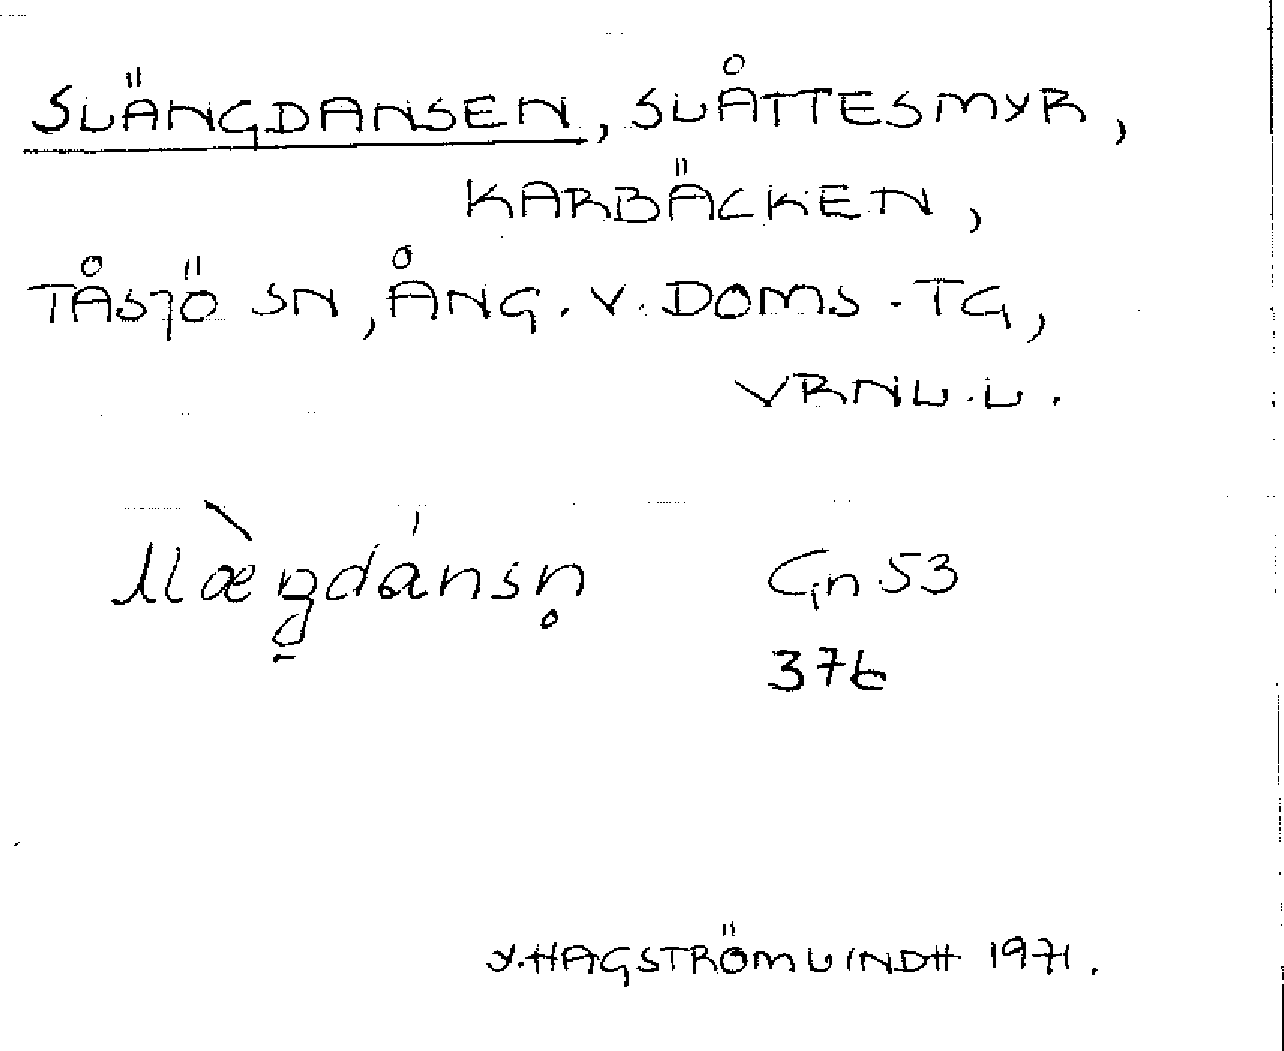 SLÄNGDANSEN, SLÅTTESMYR,
KARBÄCKEN,
TÅSJÖ SN, ÅNG. V. DOMS.-TG,
VRNL.L.
Gn 53
376
Y. HAGSTRÖM LINDH 1971.